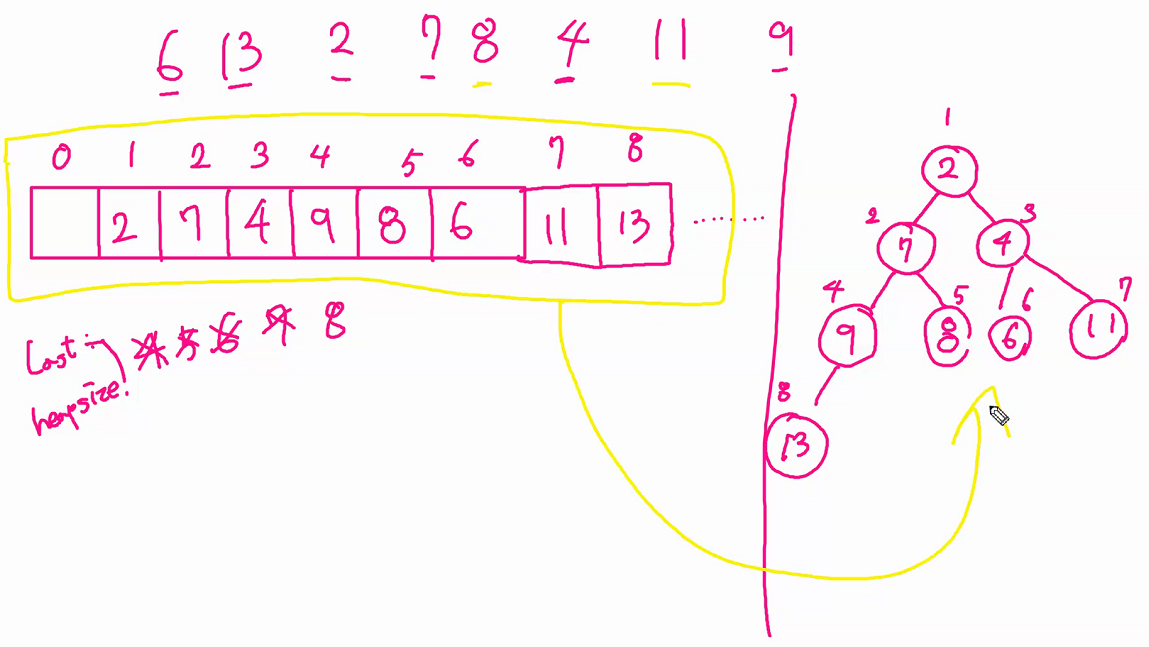 6 13 2 7 8 4 11 9
0 1 2 3 4 5 6 7 8
2 7 4 9 8 6 11 13 ........
Last in heapsize! 4 5 6 7 8
1
2
2 3
7 4
4 5 6 7
9 8 6 11
8
13